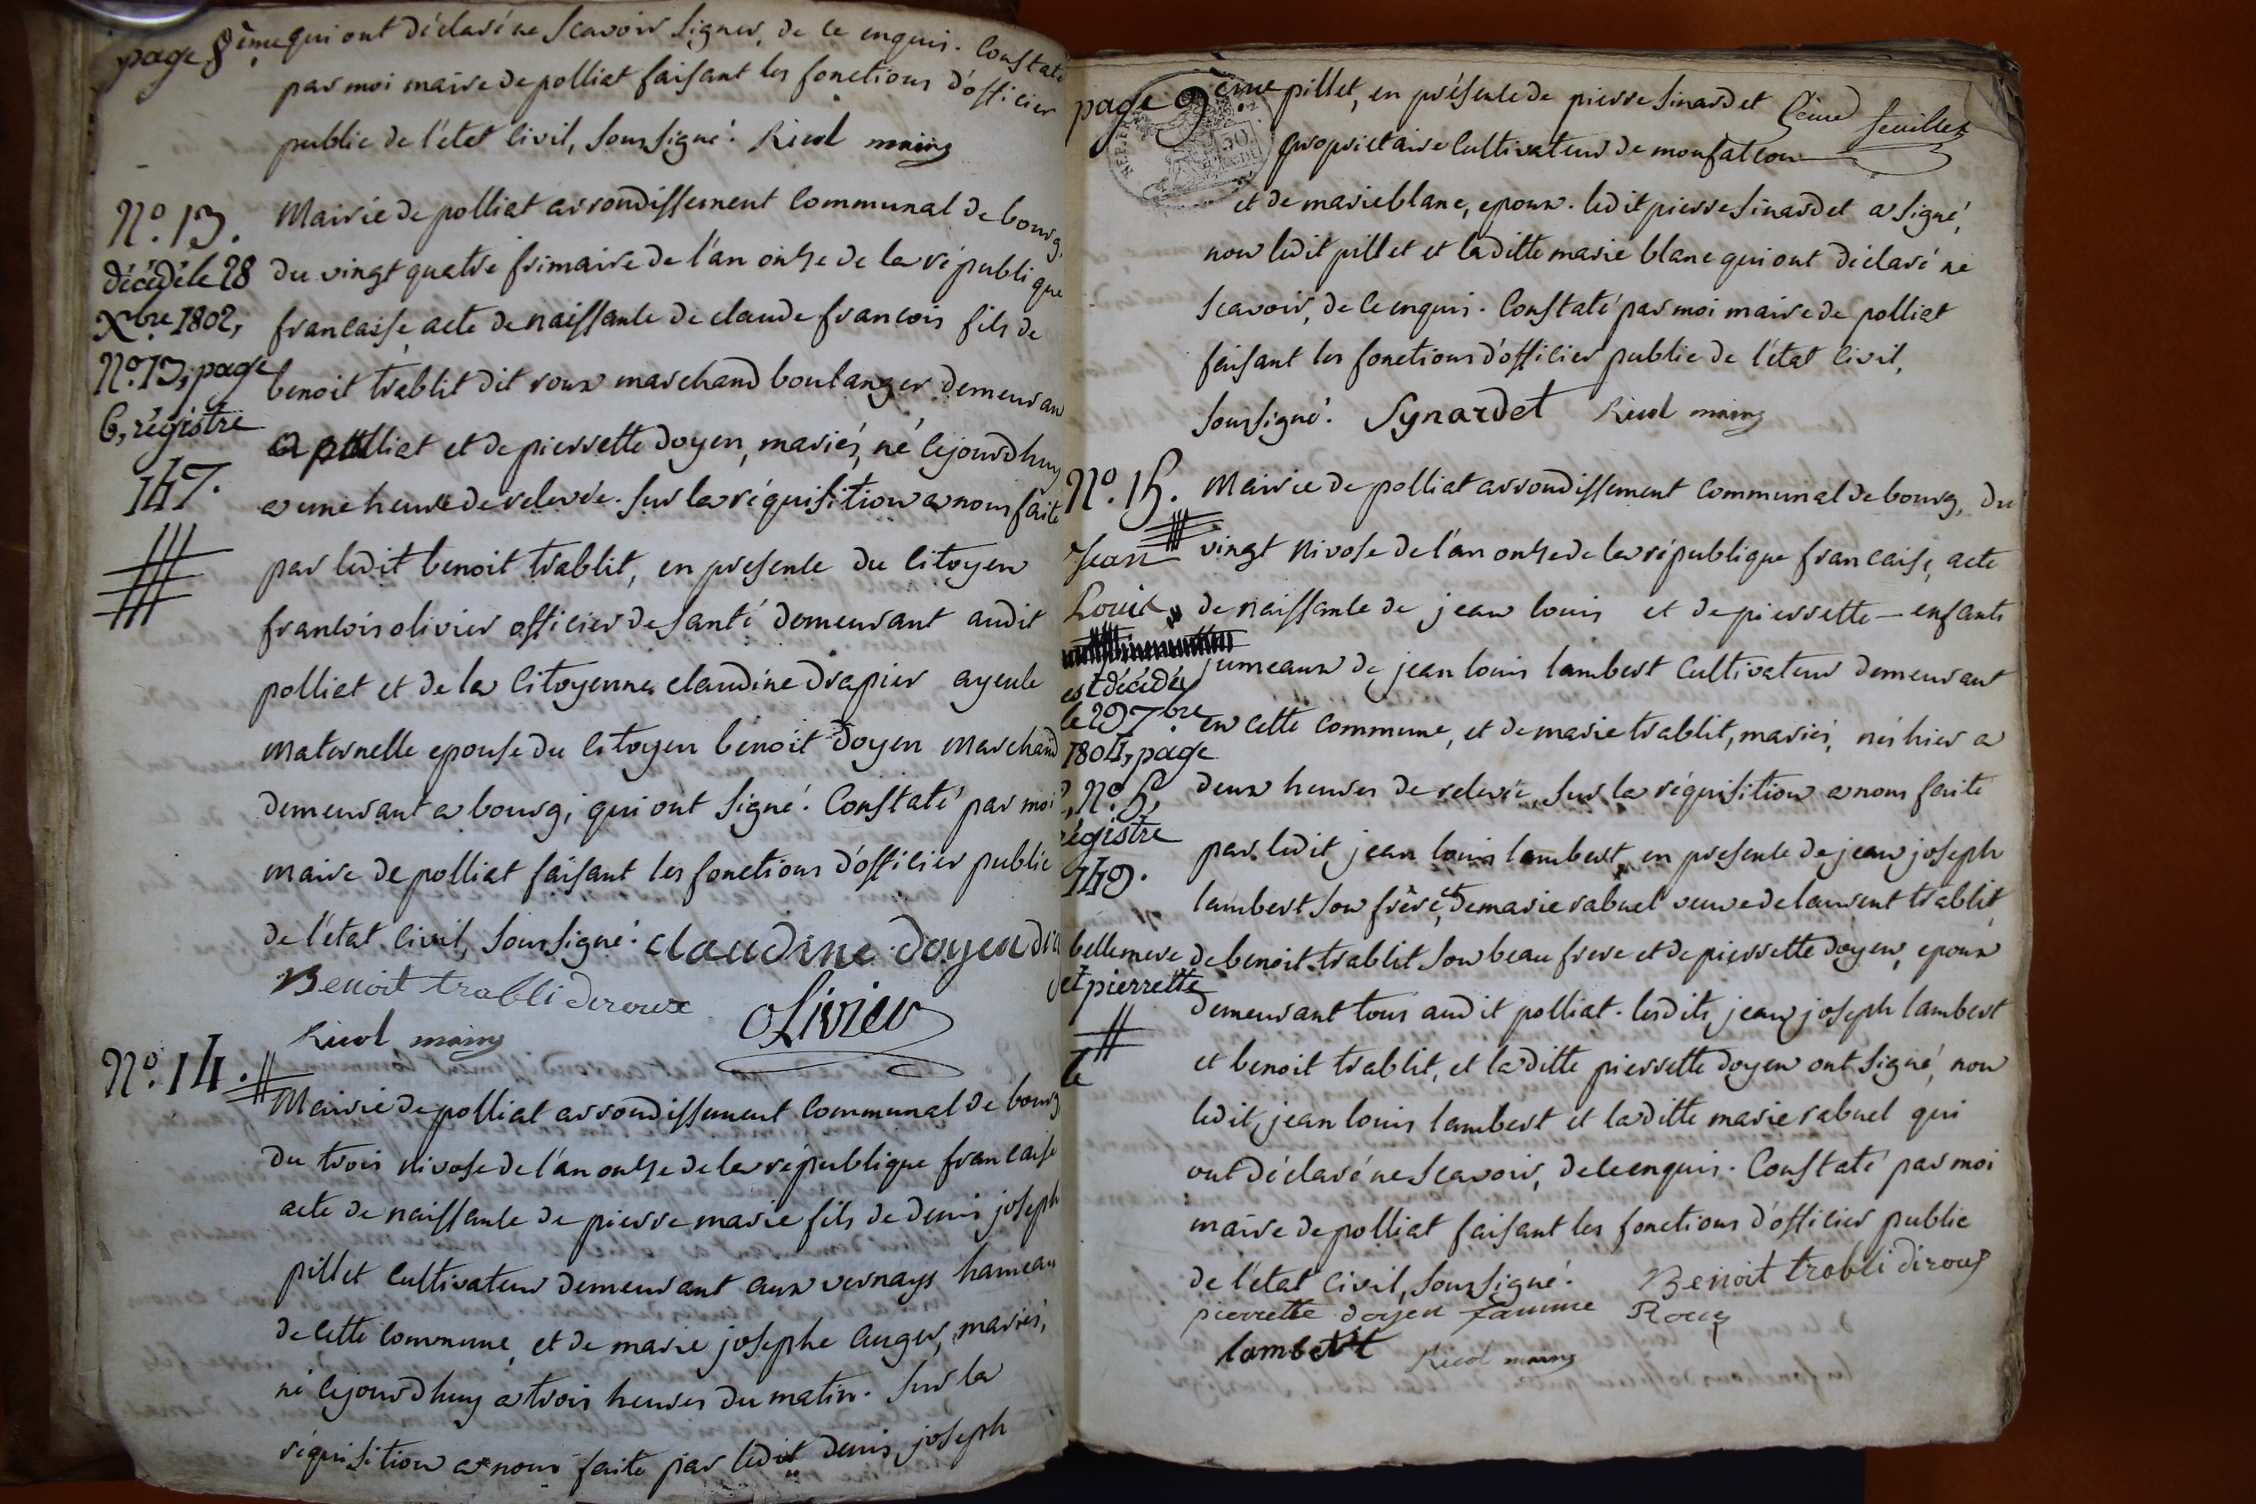 page 8ème
qui ont déclaré ne scavoir signer, de ce enquis. Constaté
par moi maire de polliat faisant les fonctions d'officier
public de l'état civil, soussigné. Ricol maire
N.o 13.
décédé le 28
Xbre 1802,
N.o 13, page
6, régistre
147.
Mairie de polliat arrondissement communal de bourg,
du vingt quatre frimaire de l'an onze de la république
francaise, acte de naissance de claude francois fils de
benoit trablit dit roux marchand boulanger demeuran
a polliat et de pierrette doyen, mariés, né cejourdhuy
a une heure de relevée. Sur la réquisition a nous faite
par ledit benoit trablit, en presence du citoyen
francois olivier officier de santé demeurant audit
polliat et de la citoyenne claudine drapier ayeule
maternelle epouse du citoyen benoit doyen marchand
demeurant a bourg, qui ont signé. Constaté par moi
maire de polliat faisant les fonctions d'officier public
de l'état civil, soussigné. claudine doyen dra
Benoit trabli diroux
olivier
Ricol maire
N.o 14.
Mairie de polliat arrondissement communal de bourg
du trois nivose de l'an onze de la république francaise
acte de naissance de pierre marie fils de denis joseph
pillet cultivateur demeurant aux vernays hameau
de cette commune, et de marie josephe auger, mariés,
né cejourdhuy a trois heures du matin. Sur la
réquisition a nous faite par ledit denis joseph
page 9ème
pillet, en présence de pierre sinardet
5eme feuillet
propriétaire cultivateur de monfalcon
et de marie blanc, epoux. ledit pierre sinardet a signé,
non ledit pillet et laditte marie blanc qui ont déclaré ne
scavoir, de ce enquis. Constaté par moi maire de polliat
faisant les fonctions d'officier public de l'état civil,
soussigné. Synardet Ricol maire
N.o 15.
Jean
Louis
est décédé
le 29 7bre
1804, page
N.o 5,
régistre
149.
bellemere
et pierrette
te
Mairie de polliat arrondissement communal de bourg, du
vingt nivose de l'an onze de la république francaise, acte
de naissance de jean louis et de pierrette — enfants
jumeaux de jean louis lambert cultivateur demeurant
en cette commune, et de marie trablit, mariés, nés hier a
deux heures de relevée, sur la réquisition a nous faite
par ledit jean louis lambert, en presence de jean joseph
lambert son frère, et de marie rabuel veuve de laurent trablit,
de benoit trablit son beau frere et de pierrette doyen, epoux
demeurant tous audit polliat. lesdits jean joseph lambert
et benoit trablit, et laditte pierrette doyen ont signé, non
ledit jean louis lambert et laditte marie rabuel qui
ont déclaré ne scavoir, de ce enquis. Constaté par moi
maire de polliat faisant les fonctions d'officier public
de l'état civil, soussigné. Benoit trabli diroux
pierrette doyen famme Roux
lambert Ricol maire